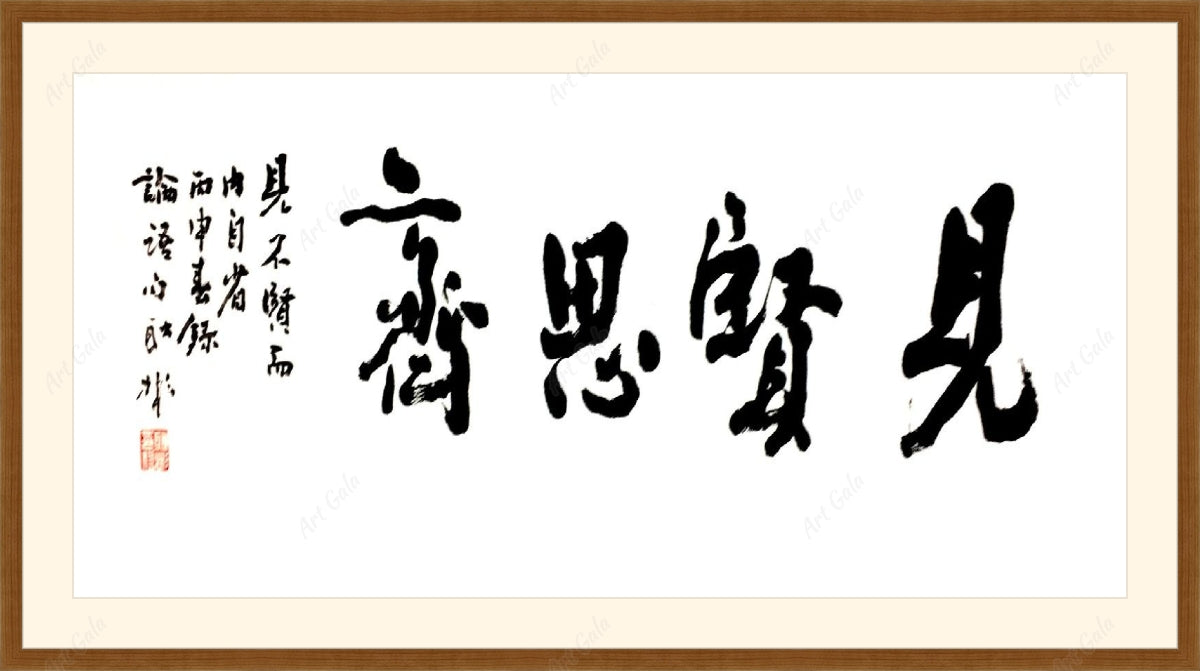 見賢思齊
見不賢而
内自省
丙申春錄
論語句
Art Gala